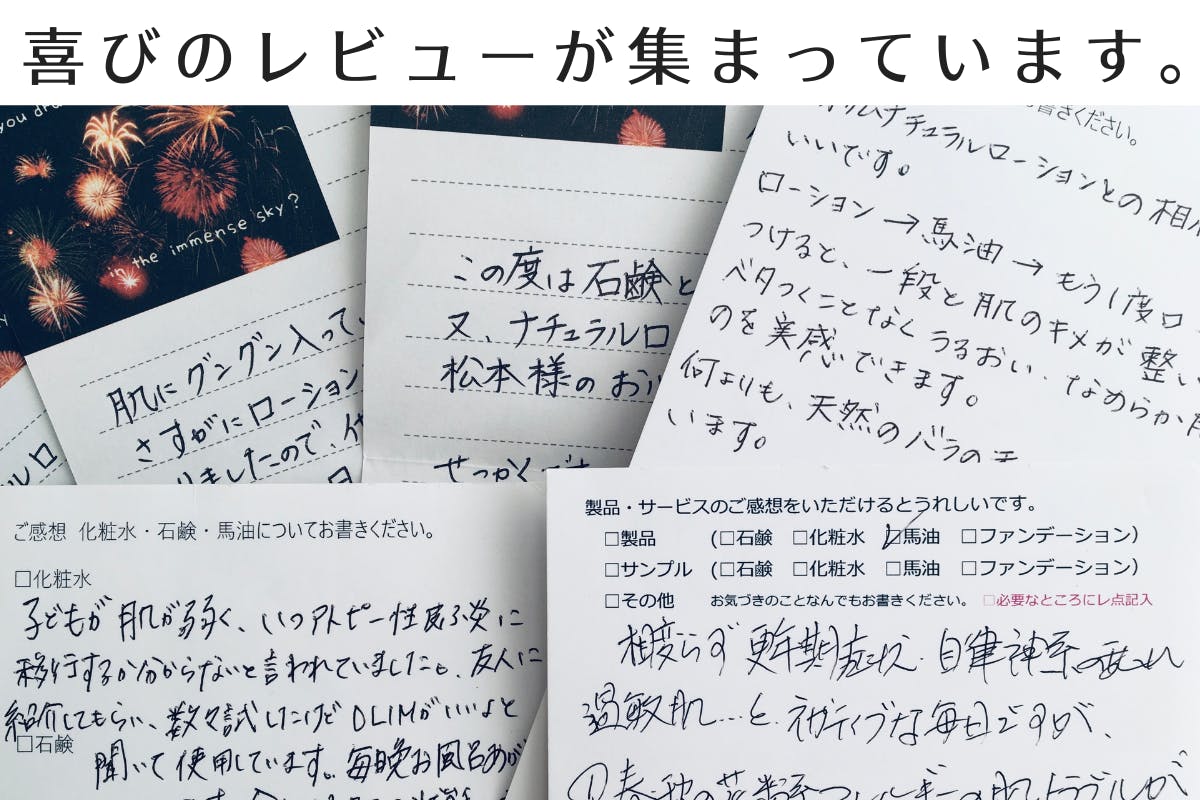 喜びのレビューが集まっています。
you dr
in the immense sky?
肌にグングン入って
さすがにローション
りましたので、
この度は石鹸と
又、ナチュラルロ
松本様のお
せっかくです
書きください。
ナチュラルローションとの相
いいです。
ローション→馬油→もう1度ロ
つけると、一段と肌のキメが整い
ベタつくことなくうるおい、なめらか
のを実感できます。
何よりも、天然のバラの
います。
ご感想 化粧水・石鹸・馬油についてお書きください。
□化粧水
子どもが肌が弱く、いつアトピー性皮ふ炎に
移行するか分からないと言われていましたが、友人に
紹介してもらい、数々試したけどOLIMがいいよと
□石鹸
聞いて使用しています。毎晩お風呂あが
製品・サービスのご感想をいただけるとうれしいです。
□製品 (□石鹸 □化粧水 □馬油 □ファンデーション)
□サンプル (□石鹸 □化粧水 □馬油 □ファンデーション)
□その他 お気づきのことなんでもお書きください。 □必要なところにレ点記入
相変らず更年期症状、自律神経の乱れ
過敏肌…と、ネガティブな毎日ですが、
①春・秋の花粉症アレルギーの肌トラブルが